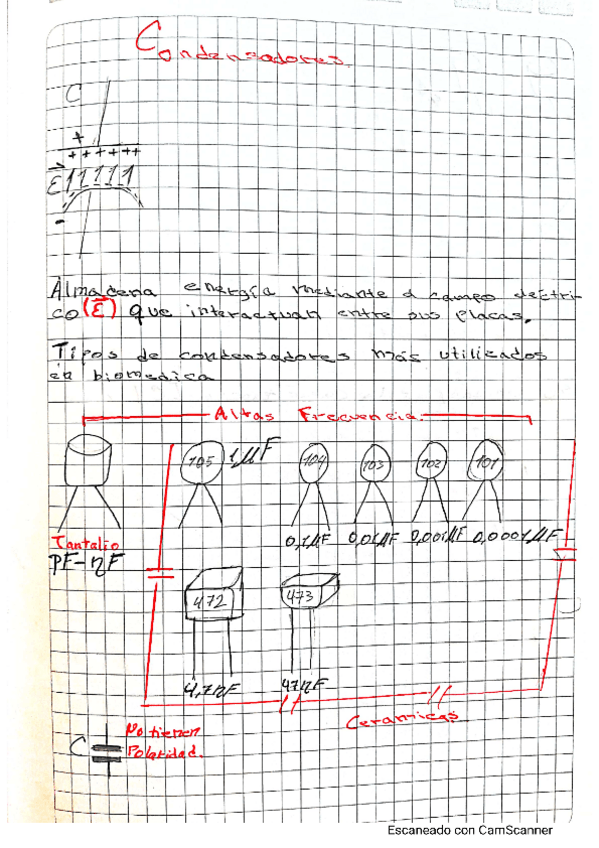 Condensadores
C
+
+ + + + + +
E
-
Almacena energía mediante el campo electri-
co (E) que interactuan entre sus placas.
Tipos de condensadores más utilizados
en biomedica
Altas Frecuencia.
105 1μF 104 103 102 101
Tantalio 0,1μF 0,01μF 0,001μF 0,0001μF
PF-ηF
472 473
4,7ηF 47ηF
Ceramicas
C No tienen
Polaridad.
Escaneado con CamScanner